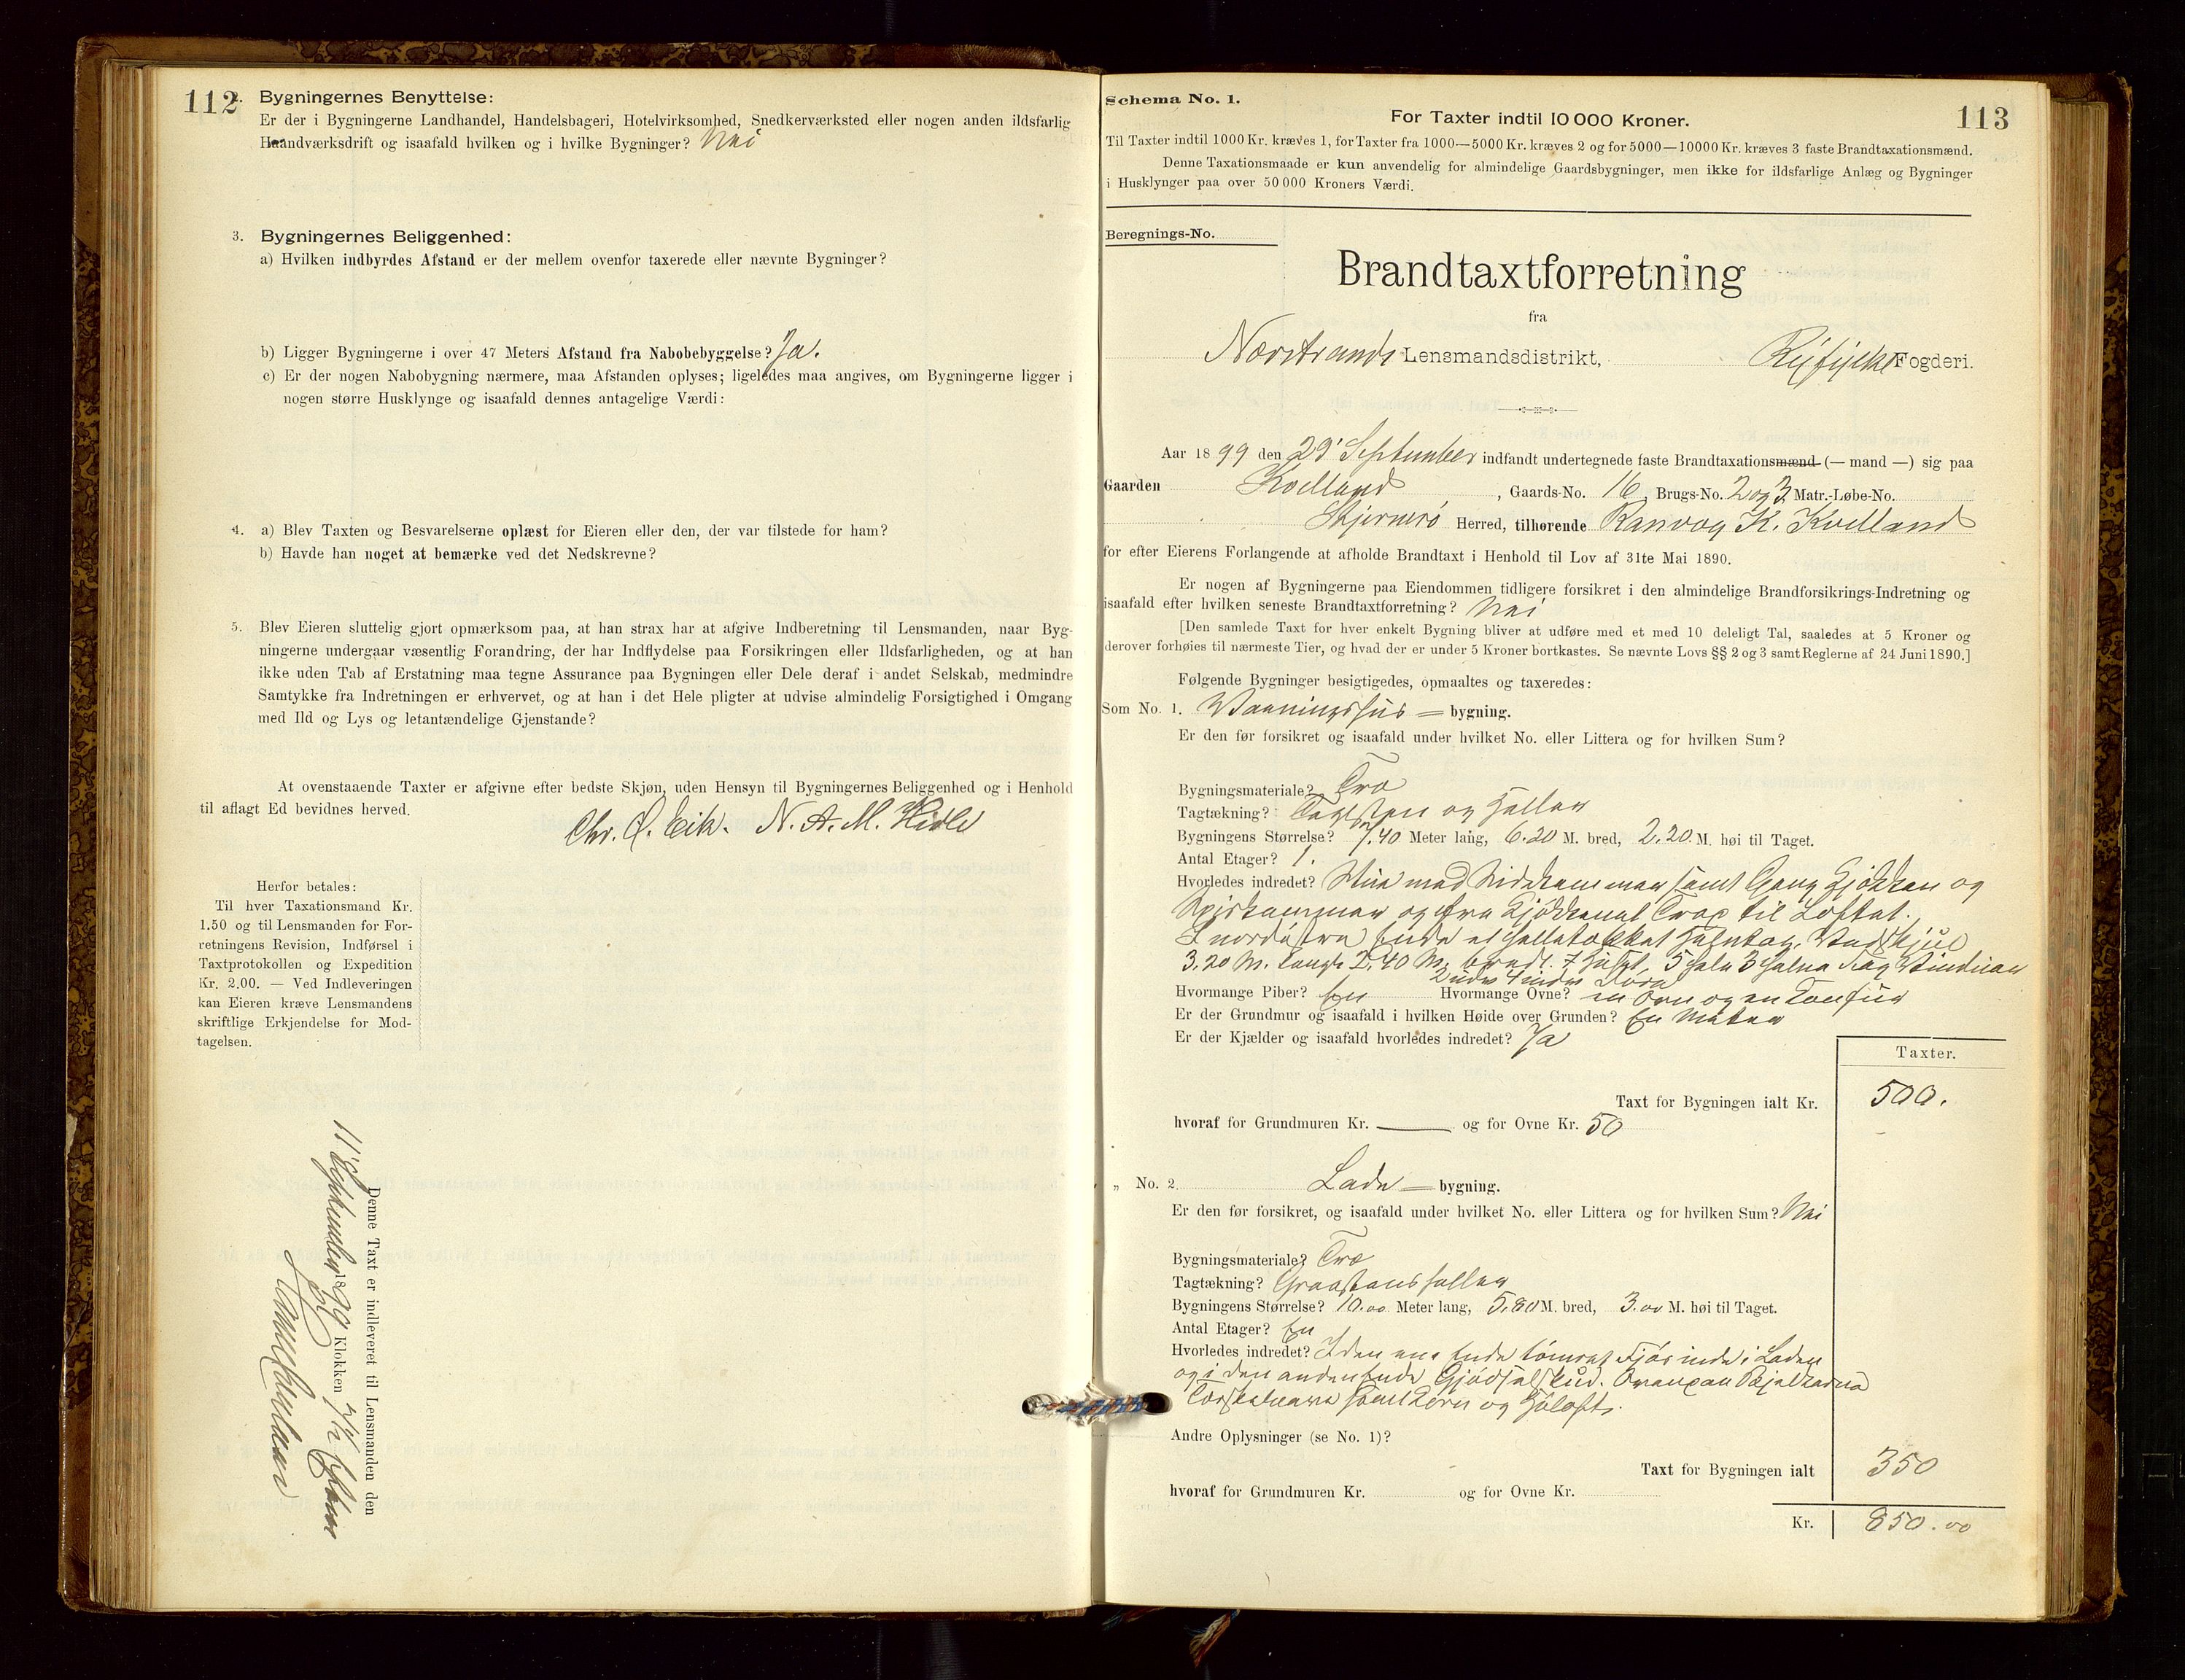 112
2. Bygningernes Benyttelse:
Er der i Bygningerne Landhandel, Handelsbageri, Hotelvirksomhed, Snedkerværksted eller nogen anden ildsfarlig
Haandværksdrift og isaafald hvilken og i hvilke Bygninger? Nei
3. Bygningernes Beliggenhed:
a) Hvilken indbyrdes Afstand er der mellem ovenfor taxerede eller nævnte Bygninger?
b) Ligger Bygningerne i over 47 Meters Afstand fra Nabobebyggelse? Ja.
c) Er der nogen Nabobygning nærmere, maa Afstanden oplyses; ligeledes maa angives, om Bygningerne ligger i
nogen større Husklynge og isaafald dennes antagelige Værdi:
4. a) Blev Taxten og Besvarelserne oplæst for Eieren eller den, der var tilstede for ham?
b) Havde han noget at bemærke ved det Nedskrevne?
5. Blev Eieren sluttelig gjort opmærksom paa, at han strax har at afgive Indberetning til Lensmanden, naar Byg-
ningerne undergaar væsentlig Forandring, der har Indflydelse paa Forsikringen eller Ildsfarligheden, og at han
ikke uden Tab af Erstatning maa tegne Assurance paa Bygningen eller Dele deraf i andet Selskab, medmindre
Samtykke fra Indretningen er erhvervet, og at han i det Hele pligter at udvise almindelig Forsigtighed i Omgang
med Ild og Lys og letantændelige Gjenstande?
At ovenstaaende Taxter er afgivne efter bedste Skjøn, uden Hensyn til Bygningernes Beliggenhed og i Henhold
til aflagt Ed bevidnes herved.
Chr. O. Eik. N. A. M. Hidle
Herfor betales:
Til hver Taxationsmand Kr.
1.50 og til Lensmanden for For-
retningens Revision, Indførsel i
Taxtprotokollen og Expedition
Kr. 2.00. — Ved Indleveringen
kan Eieren kræve Lensmandens
skriftlige Erkjendelse for Mod-
tagelsen.
Denne Taxt er indleveret til Lensmanden den
1899 Klokken
113
Schema No. 1.
For Taxter indtil 10 000 Kroner.
Til Taxter indtil 1000 Kr. kræves 1, for Taxter fra 1000—5000 Kr. kræves 2 og for 5000—10000 Kr. kræves 3 faste Brandtaxationsmænd.
Denne Taxationsmaade er kun anvendelig for almindelige Gaardsbygninger, men ikke for ildsfarlige Anlæg og Bygninger
i Husklynger paa over 50 000 Kroners Værdi.
Beregnings-No.
Brandtaxtforretning
fra
Nærstrands Lensmandsdistrikt, Ryfylke Fogderi.
Aar 1899 den 29' September indfandt undertegnede faste Brandtaxationsmænd (— mand —) sig paa
Gaarden Kvelland, Gaards-No. 16, Brugs-No. 2 og 3, Matr.-Løbe-No.
Stjernerø Herred, tilhørende Ranvog K. Kvelland
for efter Eierens Forlangende at afholde Brandtaxt i Henhold til Lov af 31te Mai 1890.
Er nogen af Bygningerne paa Eiendommen tidligere forsikret i den almindelige Brandforsikrings-Indretning og
isaafald efter hvilken seneste Brandtaxtforretning? Nei
[Den samlede Taxt for hver enkelt Bygning bliver at udføre med et med 10 deleligt Tal, saaledes at 5 Kroner og
derover forhøies til nærmeste Tier, og hvad der er under 5 Kroner bortkastes. Se nævnte Lovs §§ 2 og 3 samt Reglerne af 24 Juni 1890.]
Følgende Bygninger besigtigedes, opmaaltes og taxeredes:
Som No. 1. Vaaningshus — bygning.
Er den før forsikret og isaafald under hvilket No. eller Littera og for hvilken Sum?
Bygningsmateriale? Træ
Tagtækning? Taglsten og Heller
Bygningens Størrelse? 7.40 Meter lang, 6.20 M. bred, 2.20 M. høi til Taget.
Antal Etager? 1.
Hvorledes indredet? Stue med Sidekammer samt Gang Kjøkken og
Spiskammer og fra Kjøkkenet Trap til Loftet.
I nordøstre Ende et helletækket Halvtag, Vedskjul
3.20 M. langt 2.40 M. bredt. 5 hele 3 halve Fag Vinduer
Hvormange Piber? En Hvormange Ovne? en Ovn og en Komfur
Er der Grundmur og isaafald i hvilken Høide over Grunden? En Meter
Er der Kjælder og isaafald hvorledes indredet? Ja
Taxter.
Taxt for Bygningen ialt Kr. 500.
hvoraf for Grundmuren Kr. — og for Ovne Kr. 50
„ No. 2. Lade — bygning.
Er den før forsikret, og isaafald under hvilket No. eller Littera og for hvilken Sum? Nei
Bygningsmateriale? Træ
Tagtækning? Graastensheller
Bygningens Størrelse? 10.00 Meter lang, 5.80 M. bred, 3.00 M. høi til Taget.
Antal Etager? En
Hvorledes indredet? I den ene Ende tømret Fjøs inde i Laden
og i den anden Ende Gjødselskud. Ovenpaa Bjelkerne
Tærskelaave samt Korn og Høloft.
Andre Oplysninger (se No. 1)?
Taxt for Bygningen ialt 350
hvoraf for Grundmuren Kr. og for Ovne Kr.
Kr. 850.00